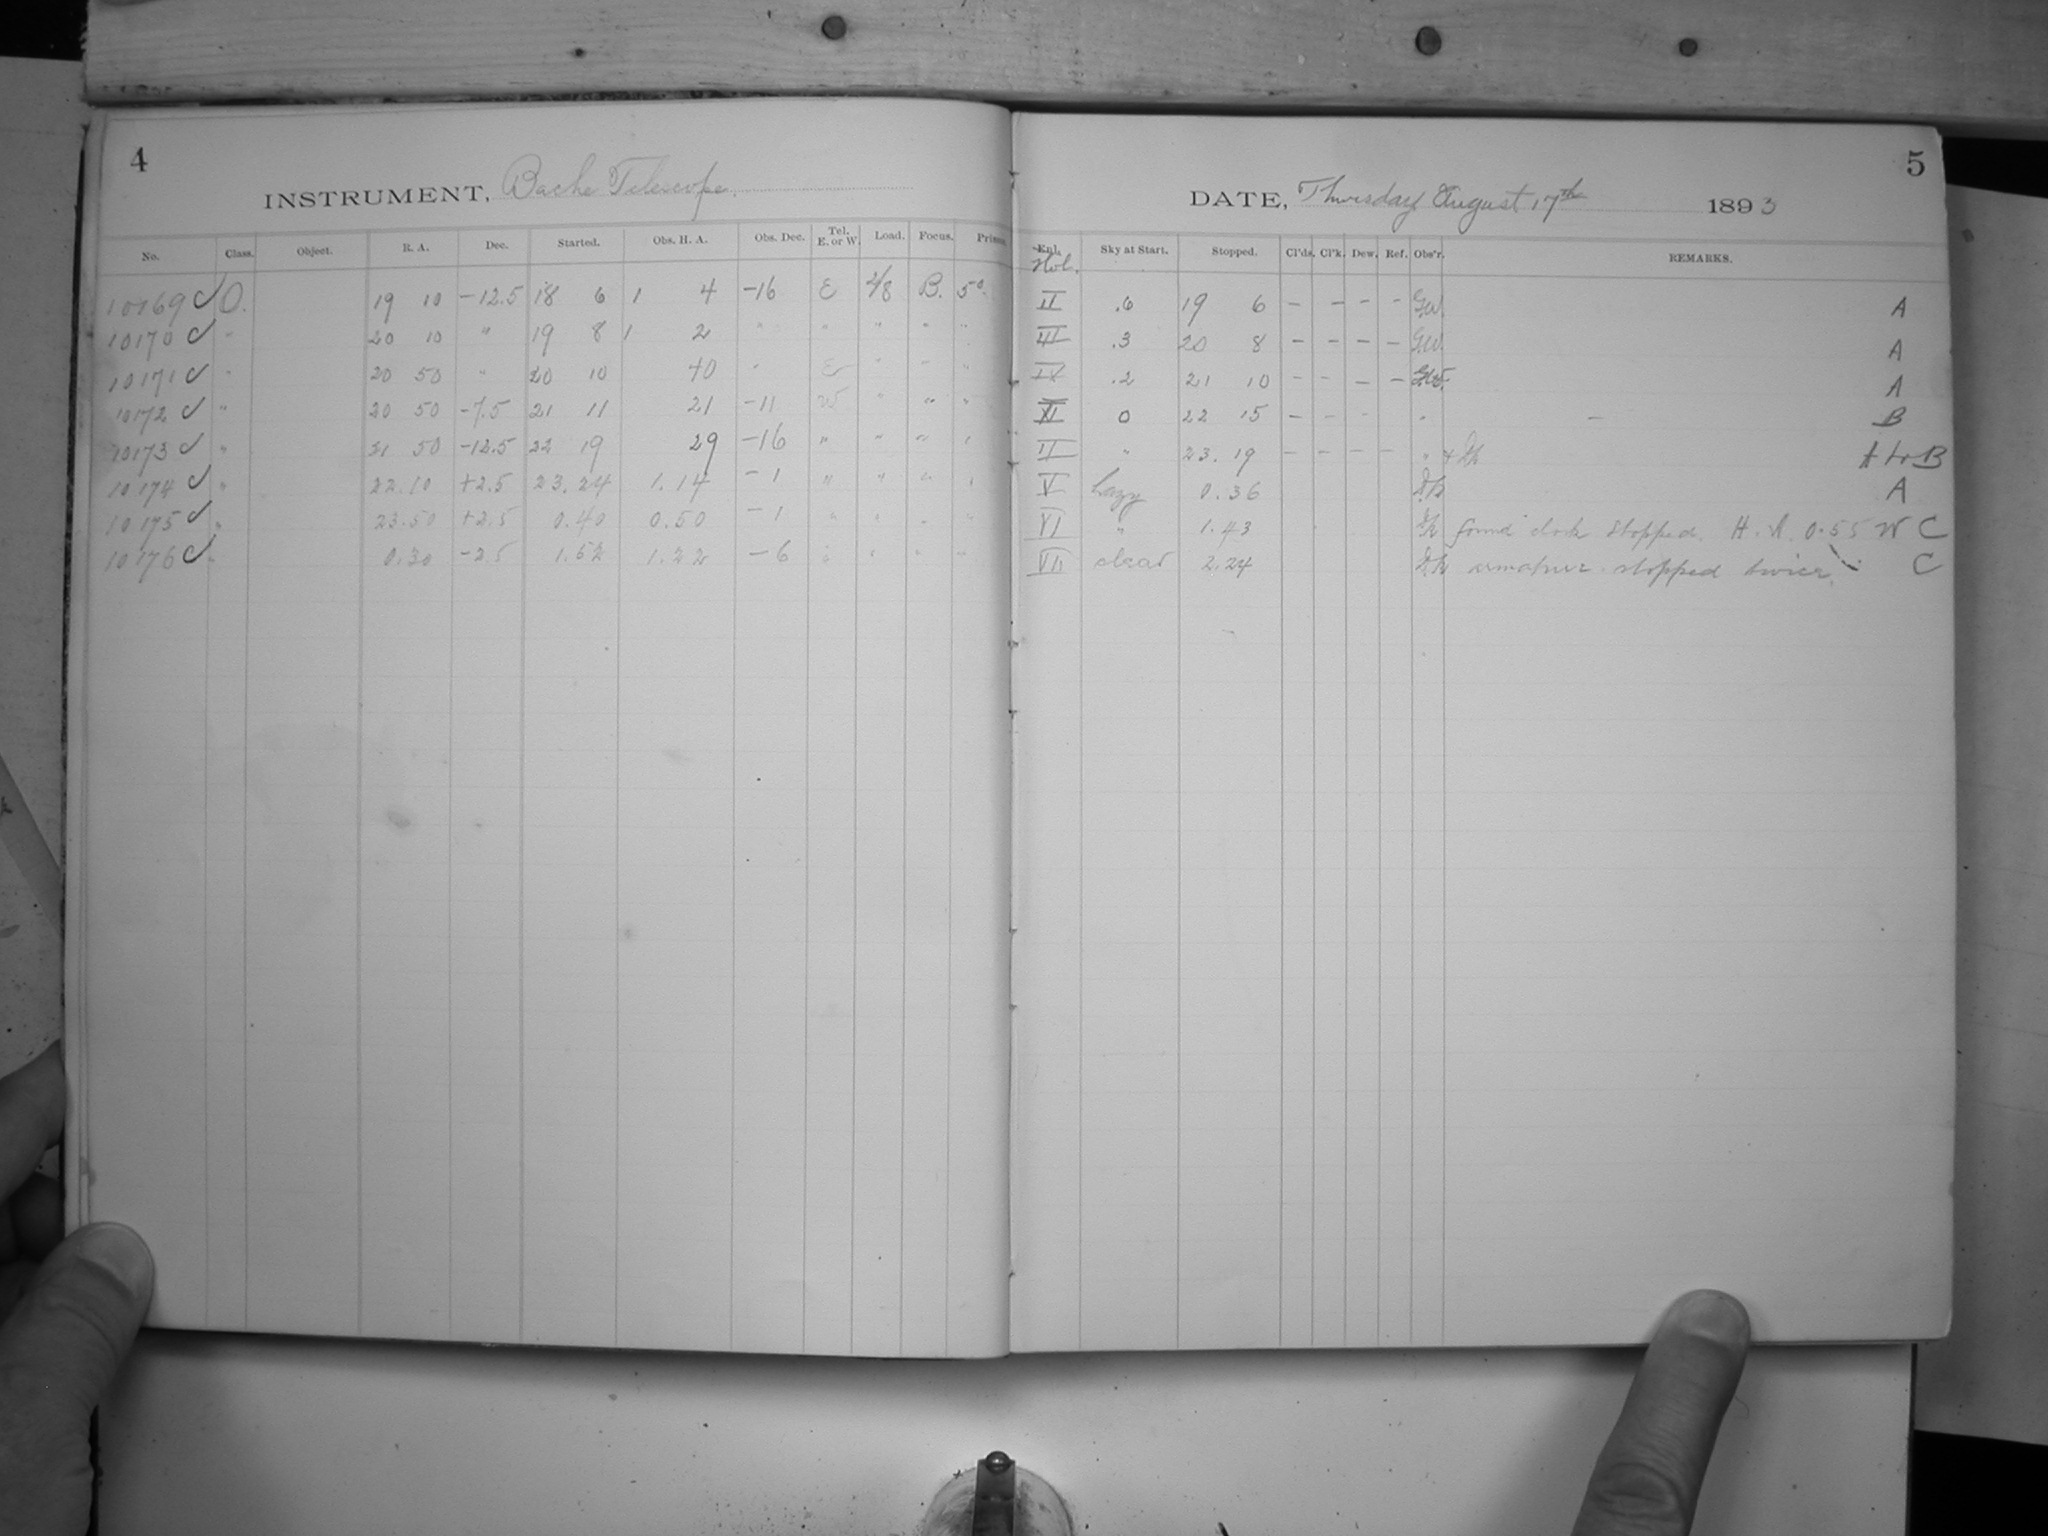 4
INSTRUMENT, Bache Telescope.
No. Class. Object. R. A. Dec. Started. Obs. H. A. Obs. Dec. Tel. E. or W. Load. Focus. Prism.
10169 ✓ O. 19 10 -12.5 18 6 1 4 -16 E 4/8 B. 50.
10170 ✓ " 20 10 " 19 8 1 2 " " " " "
10171 ✓ " 20 50 " 20 10 40 " E " " "
10172 ✓ " 20 50 -7.5 21 11 21 -11 W " " "
10173 ✓ " 21 50 -12.5 22 19 29 -16 " " " "
10174 ✓ " 22.10 +2.5 23.24 1.14 -1 " " " "
10175 ✓ " 23.50 +2.5 0.40 0.50 -1 " " " "
10176 ✓ " 0.30 -2.5 1.52 1.22 -6 " " " "
5
DATE, Thursday August 17th 1893
Hol. Sky at Start. Stopped. Cl'ds. Cl'k. Dew. Ref. Obs'r. REMARKS.
II .6 19 6 – – – – G.W. A
III .3 20 8 – – – – G.W. A
IV .2 21 10 – – – – A
0 22 15 – – – " – B
II " 23.19 – – – – " + A to B
V hazy 0.36 A
VI " 1.43 found clock stopped. H. A. 0.55 W C
VII clear 2.24 armature stopped twice. C